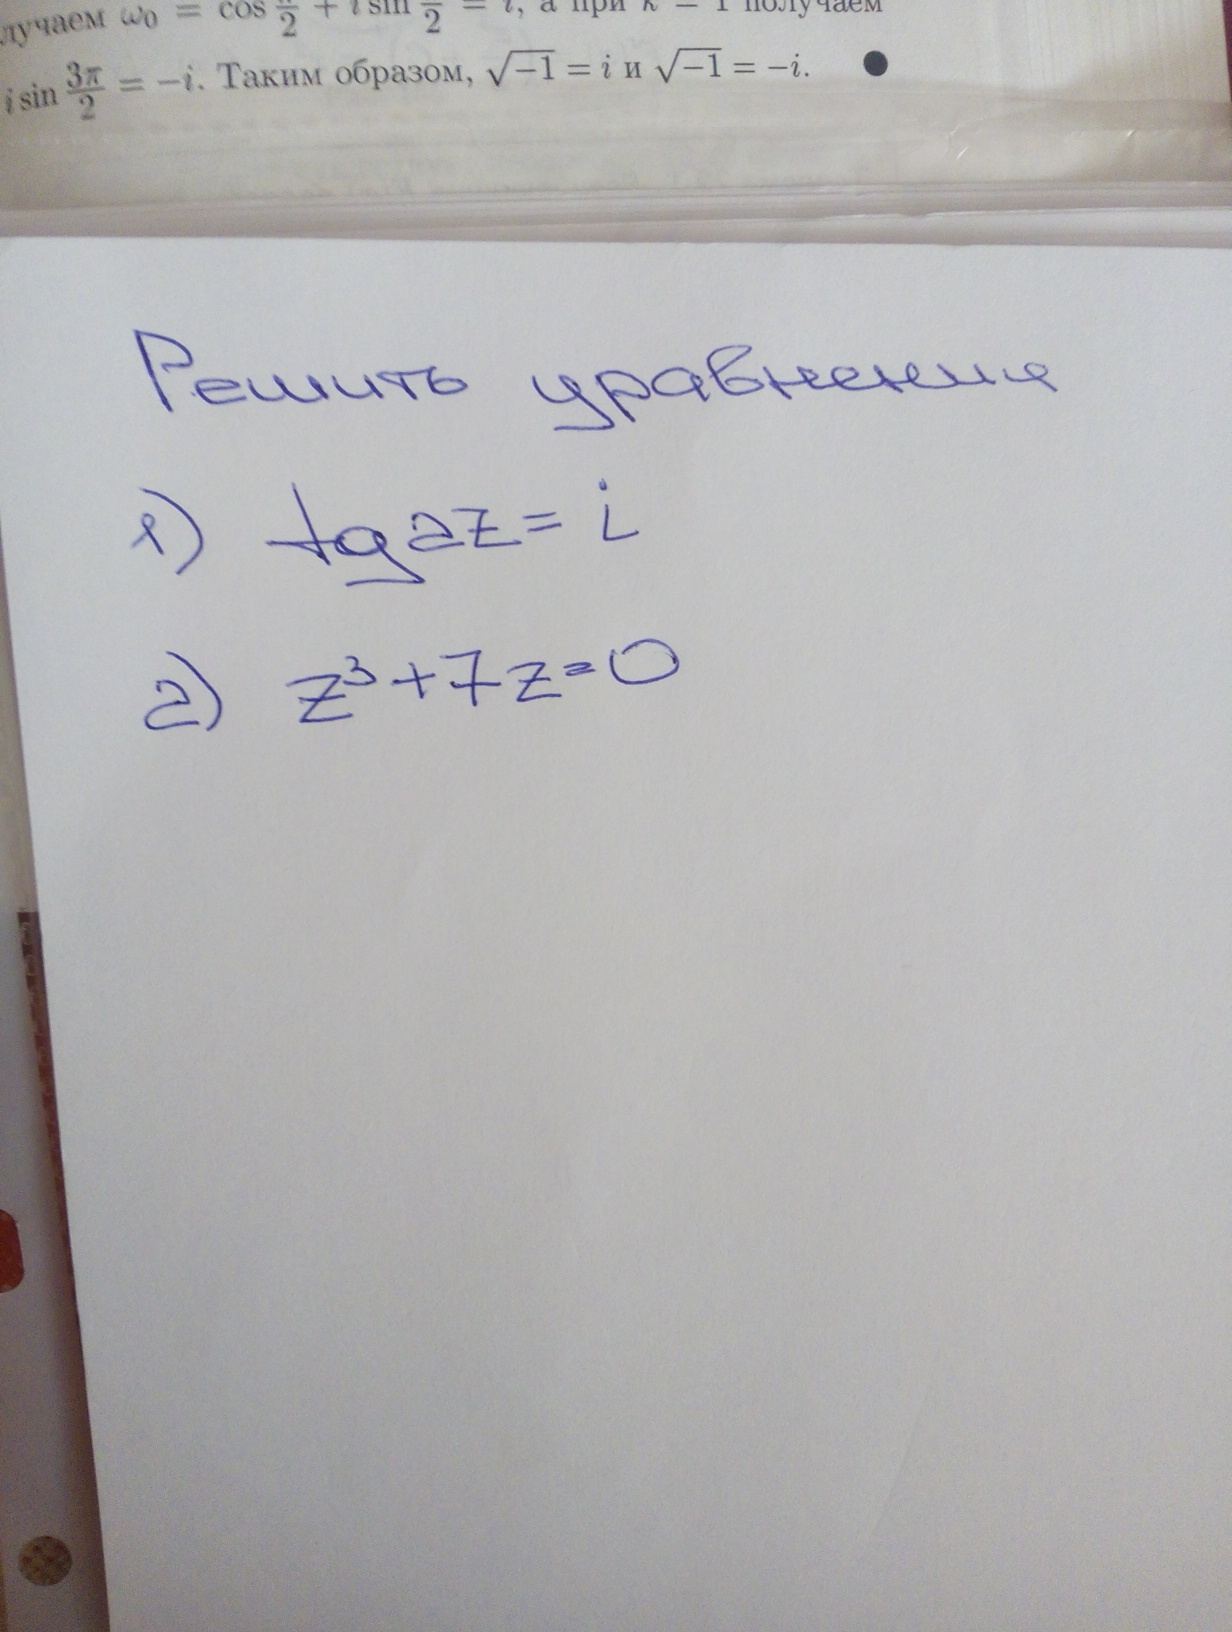 лучаем ω₀ = cos π/2 + i sin π/2 = i, а при k = 1 получаем
i sin 3π/2 = −i. Таким образом, √−1 = i и √−1 = −i. ●
Решить уравнения
1) tg 2z = i
2) z³ + 7z = 0